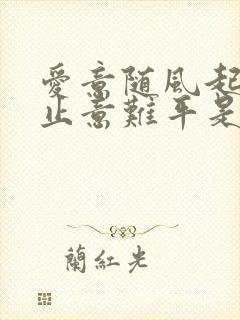 愛意随風起
止意難平是
蘭紅光